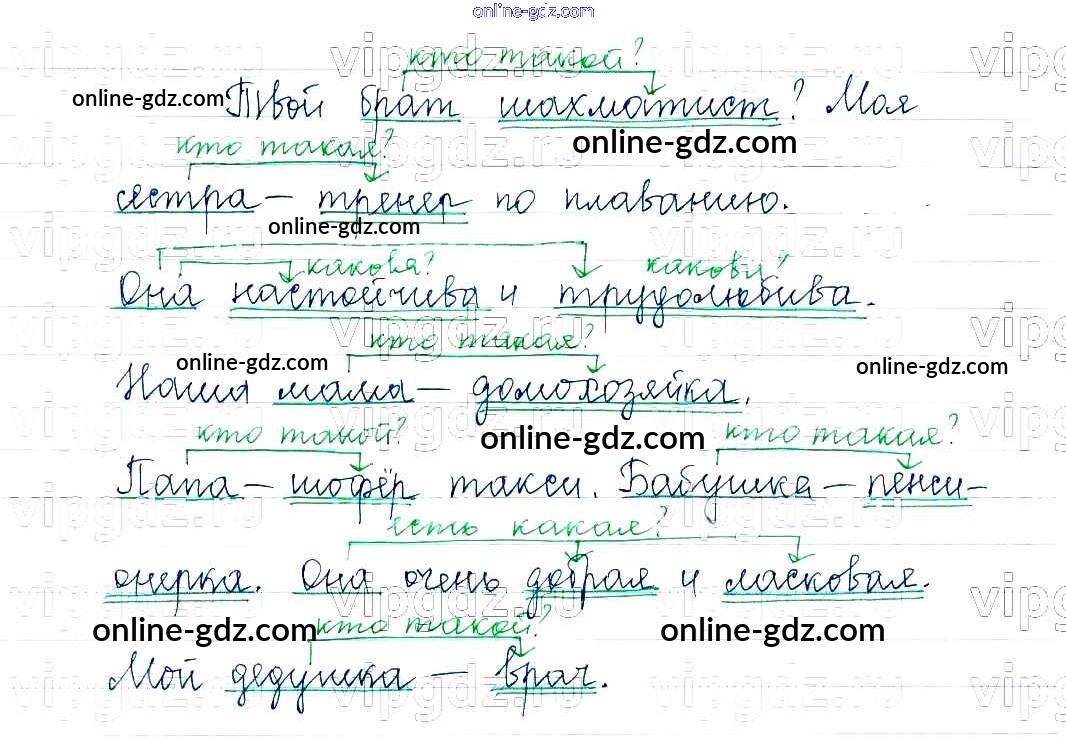 online-gdz.com
кто такой?
online-gdz.com Твой брат шахматист? Моя
кто такая? online-gdz.com
сестра — тренер по плаванию.
online-gdz.com
какова? какова?
Она настойчива и трудолюбива.
кто такая?
online-gdz.com online-gdz.com
Наша мама — домохозяйка.
кто такой? online-gdz.com кто такая?
Папа — шофёр такси. Бабушка — пенси-
есть какая?
онерка. Она очень добрая и ласковая.
online-gdz.com кто такой? online-gdz.com
Мой дедушка — врач.
vipgdz.ru